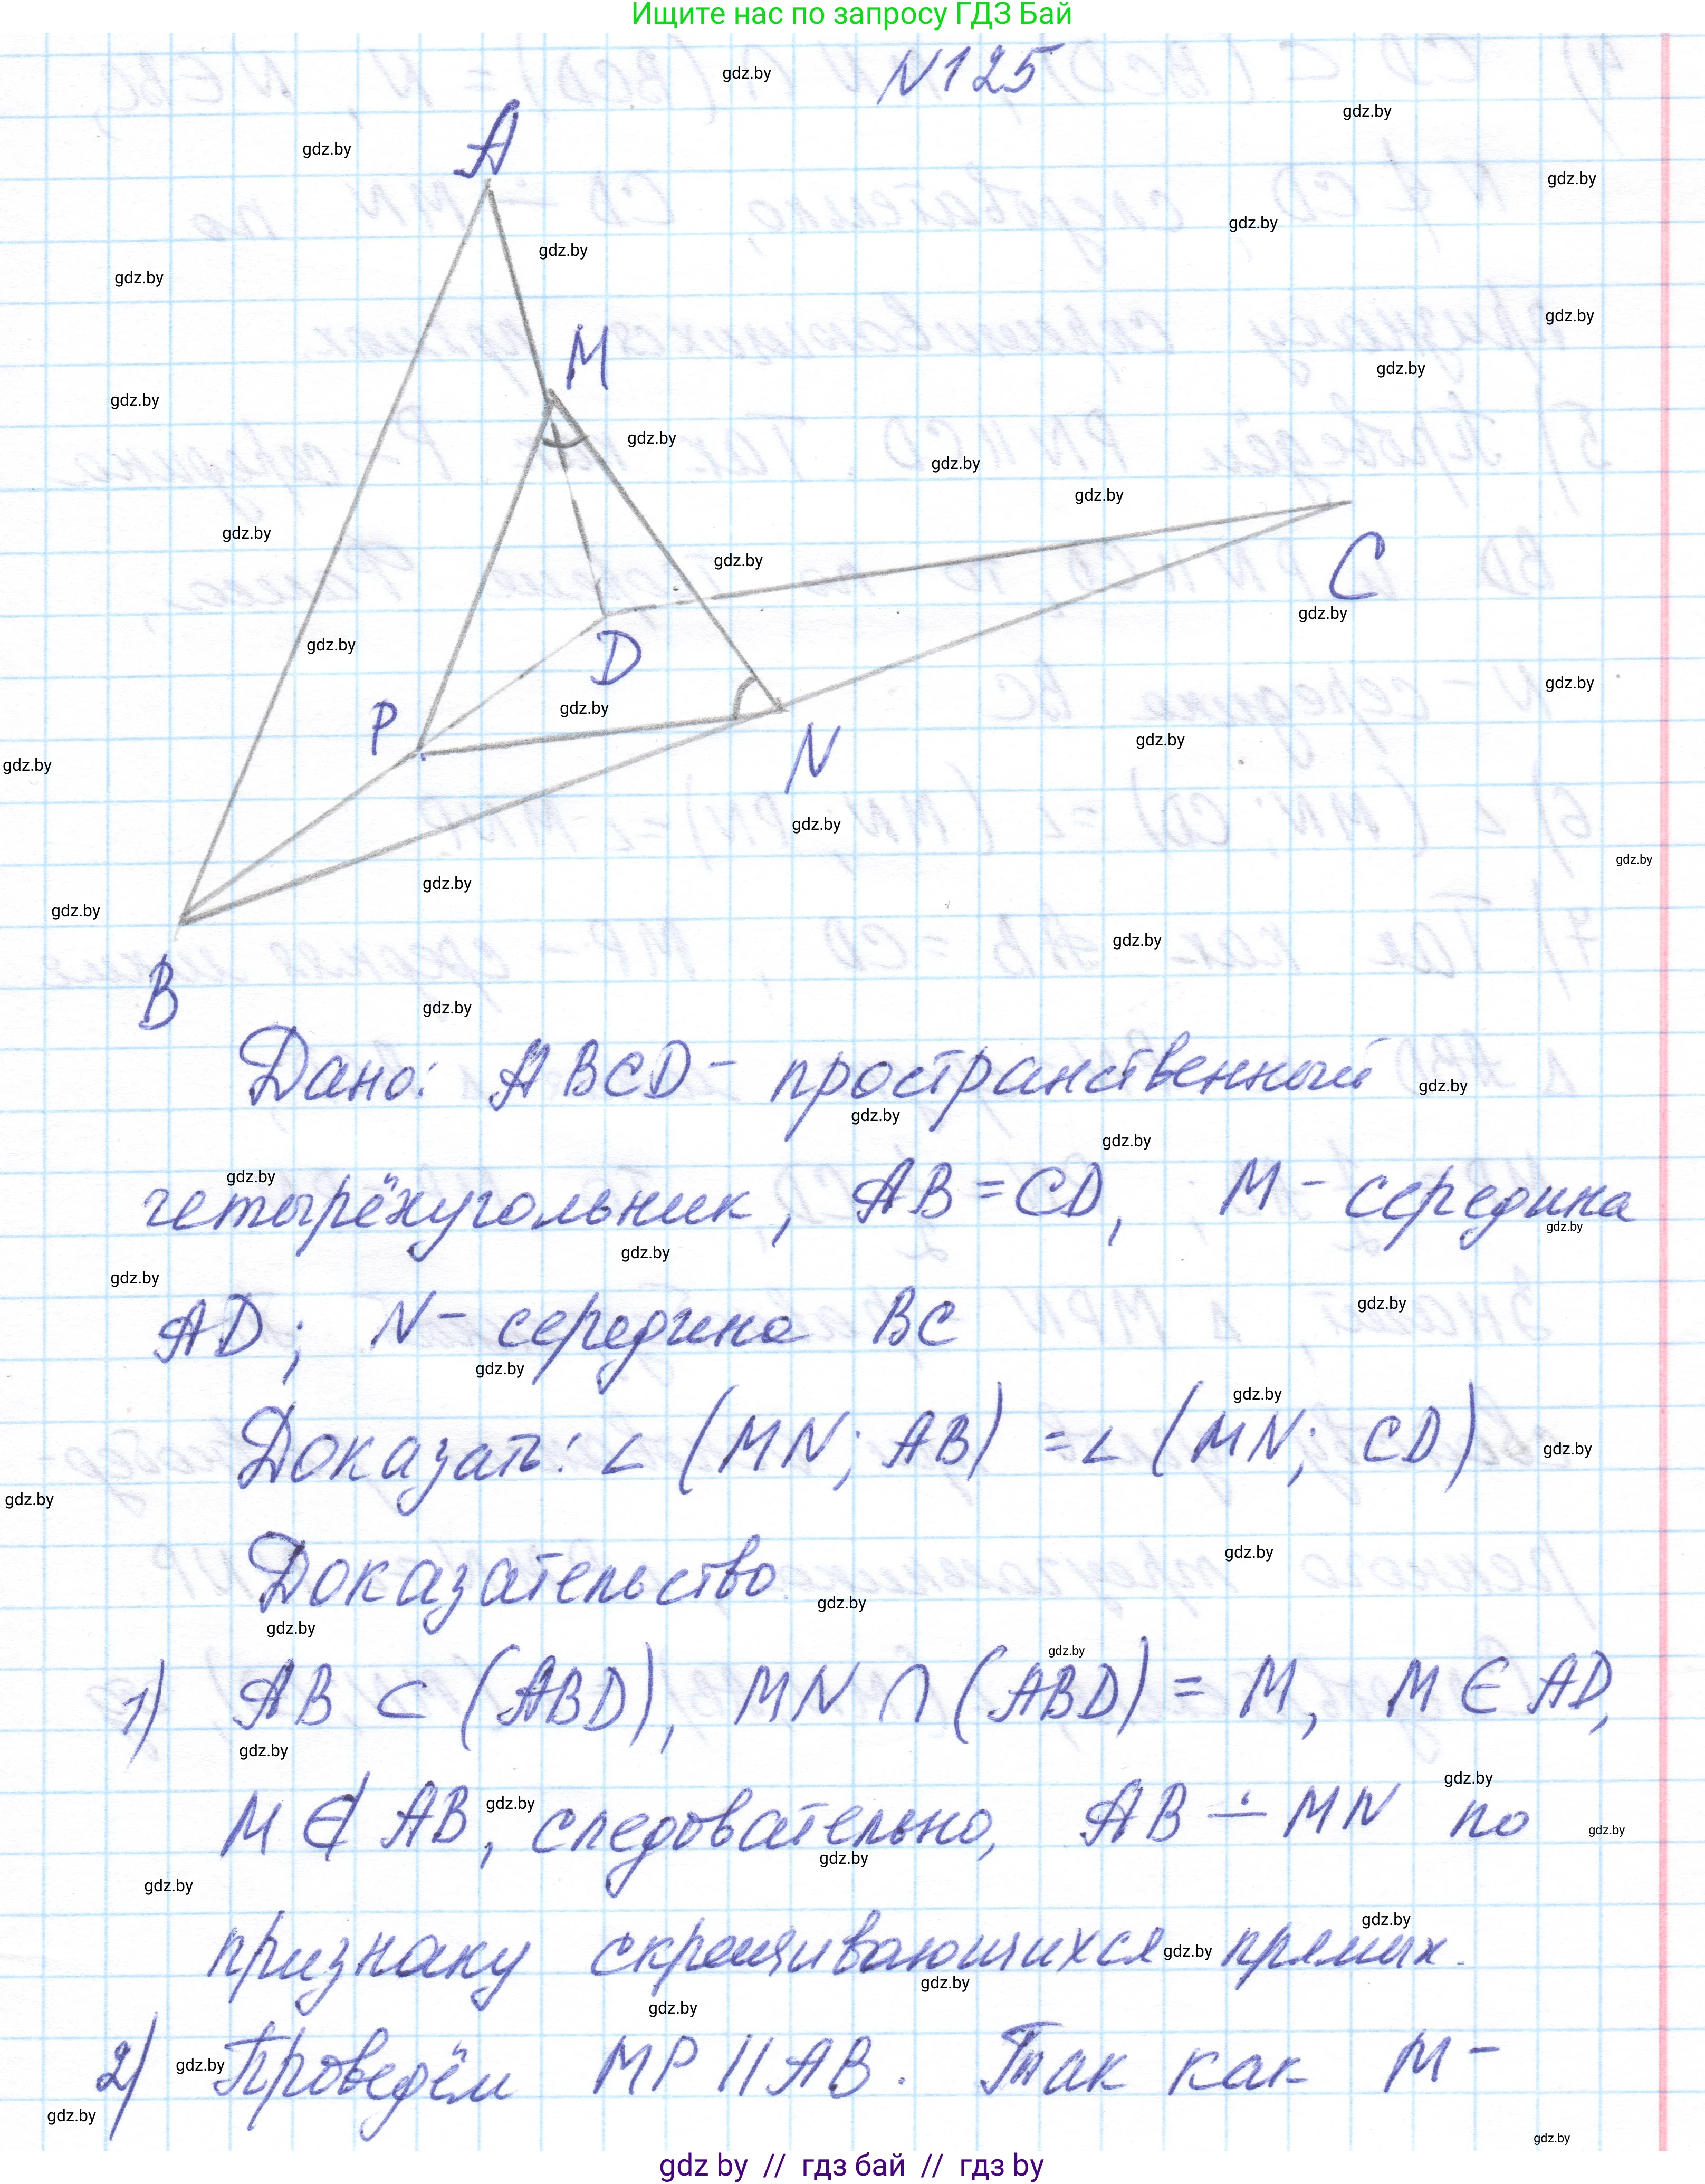 Ищите нас по запросу ГДЗ Бай
N125
A
M
C
D
P
N
B
Дано: ABCD - пространственный
четырёхугольник, AB = CD, M - середина
AD; N - середина BC
Доказать: ∠ (MN; AB) = ∠ (MN; CD)
Доказательство
1) AB ⊂ (ABD), MN ∩ (ABD) = M, M ∈ AD,
M ∉ AB, следовательно, AB ∸ MN по
признаку скрещивающихся прямых.
2) Проведём MP || AB. Так как M -
gdz by // гдз бай // гдз by